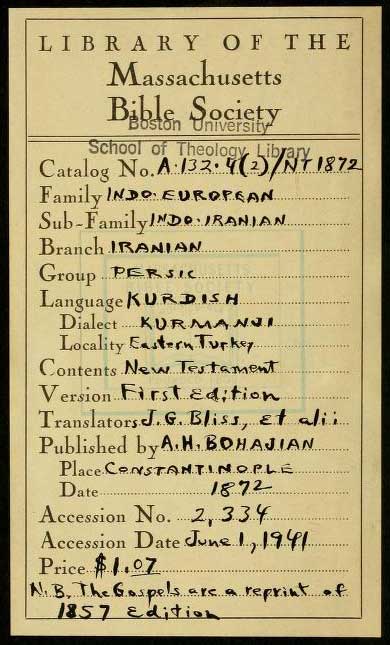 LIBRARY OF THE
Massachusetts
Bible Society
Boston University
School of Theology Library
Catalog No. A.132.4(2)/NT1872
Family INDO-EUROPEAN
Sub-Family INDO-IRANIAN
Branch IRANIAN
Group PERSIC
Language KURDISH
Dialect KURMANJI
Locality Eastern Turkey
Contents New Testament
Version First Edition
Translators J.G. Bliss, et alii
Published by A.H. BOHAJIAN
Place CONSTANTINOPLE
Date 1872
Accession No. 2,334
Accession Date June 1, 1941
Price $1.07
N.B. The Gospels are a reprint of
1857 Edition